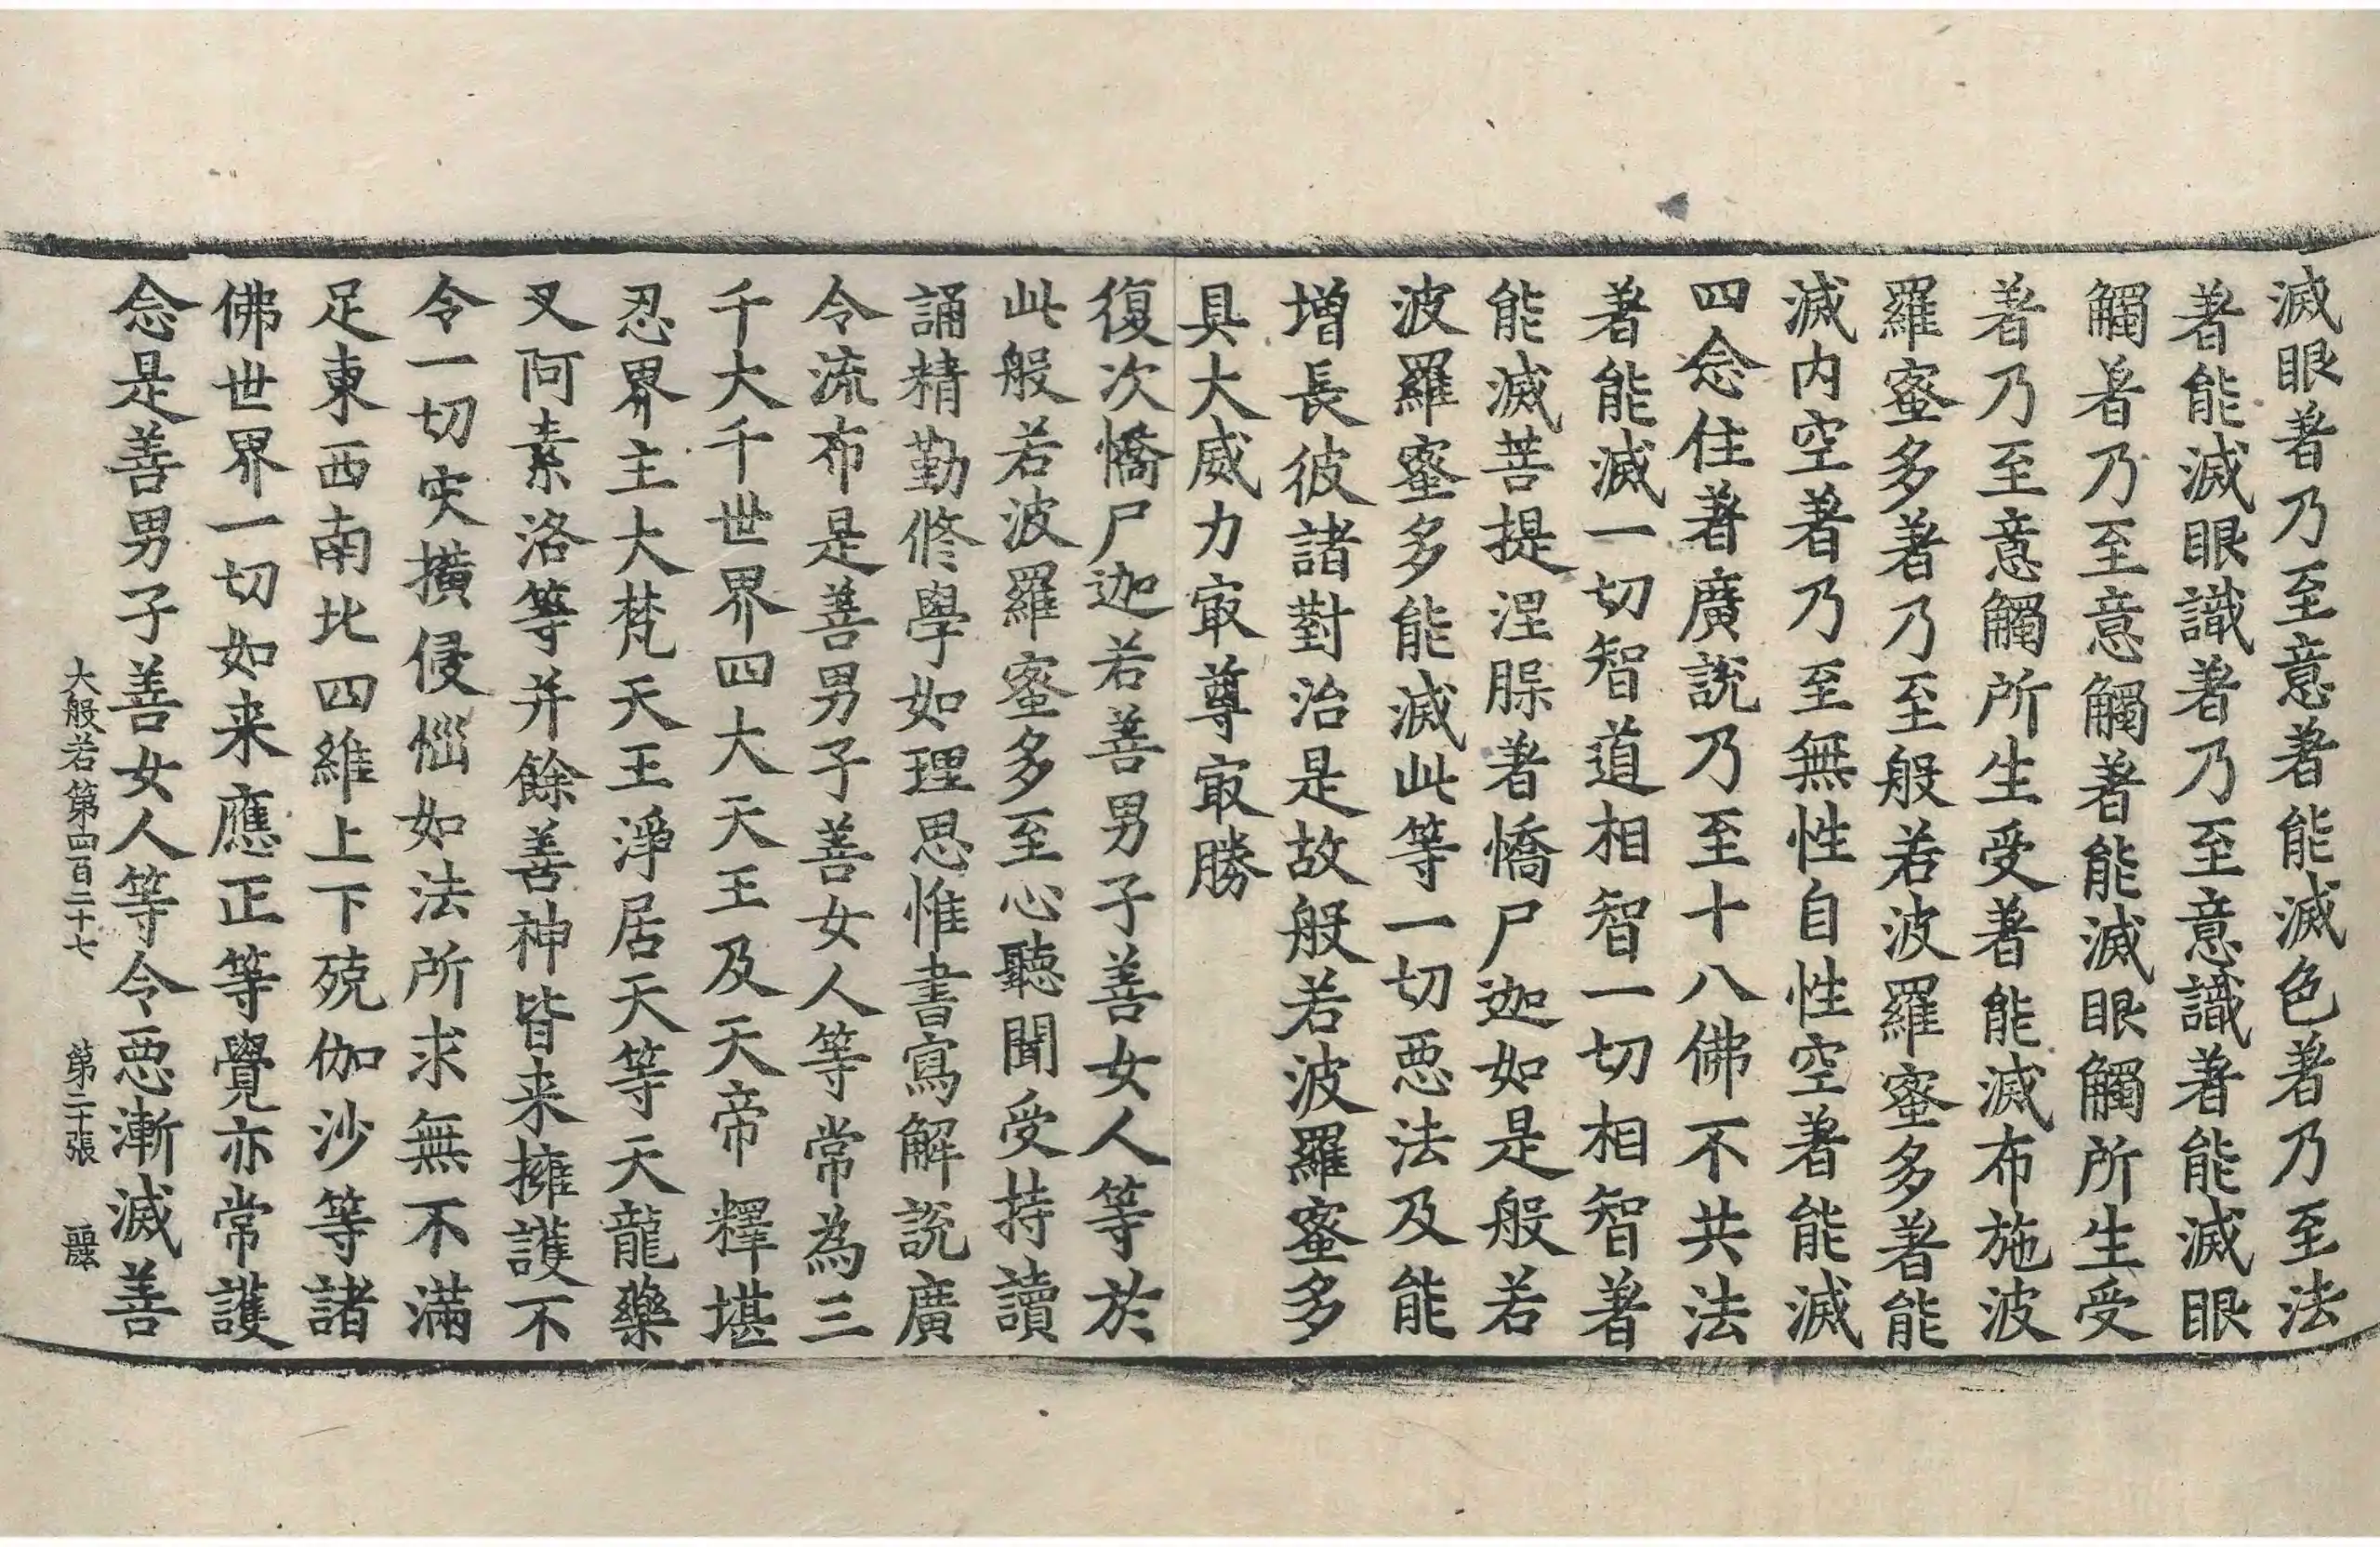 滅眼著乃至意著能滅色著乃至法
著能滅眼識著乃至意識著能滅眼
觸著乃至意觸著能滅眼觸所生受
著乃至意觸所生受著能滅布施波
羅蜜多著乃至般若波羅蜜多著能
滅内空著乃至無性自性空著能滅
四念住著廣說乃至十八佛不共法
著能滅一切智道相智一切相智著
能滅菩提涅槃著憍尸迦如是般若
波羅蜜多能滅此等一切惡法及能
增長彼諸對治是故般若波羅蜜多
具大威力㝡尊㝡勝
復次憍尸迦若善男子善女人等於
此般若波羅蜜多至心聽聞受持讀
誦精勤修學如理思惟書寫解說廣
令流布是善男子善女人等常為三
千大千世界四大天王及天帝釋堪
忍界主大梵天王淨居天等天龍藥
叉阿素洛等并餘善神皆来擁護不
令一切灾橫侵惱如法所求無不滿
足東西南北四維上下殑伽沙等諸
佛世界一切如来應正等覺亦常護
念是善男子善女人等令惡漸滅善
大般若第四百二十七 第二十張 麗